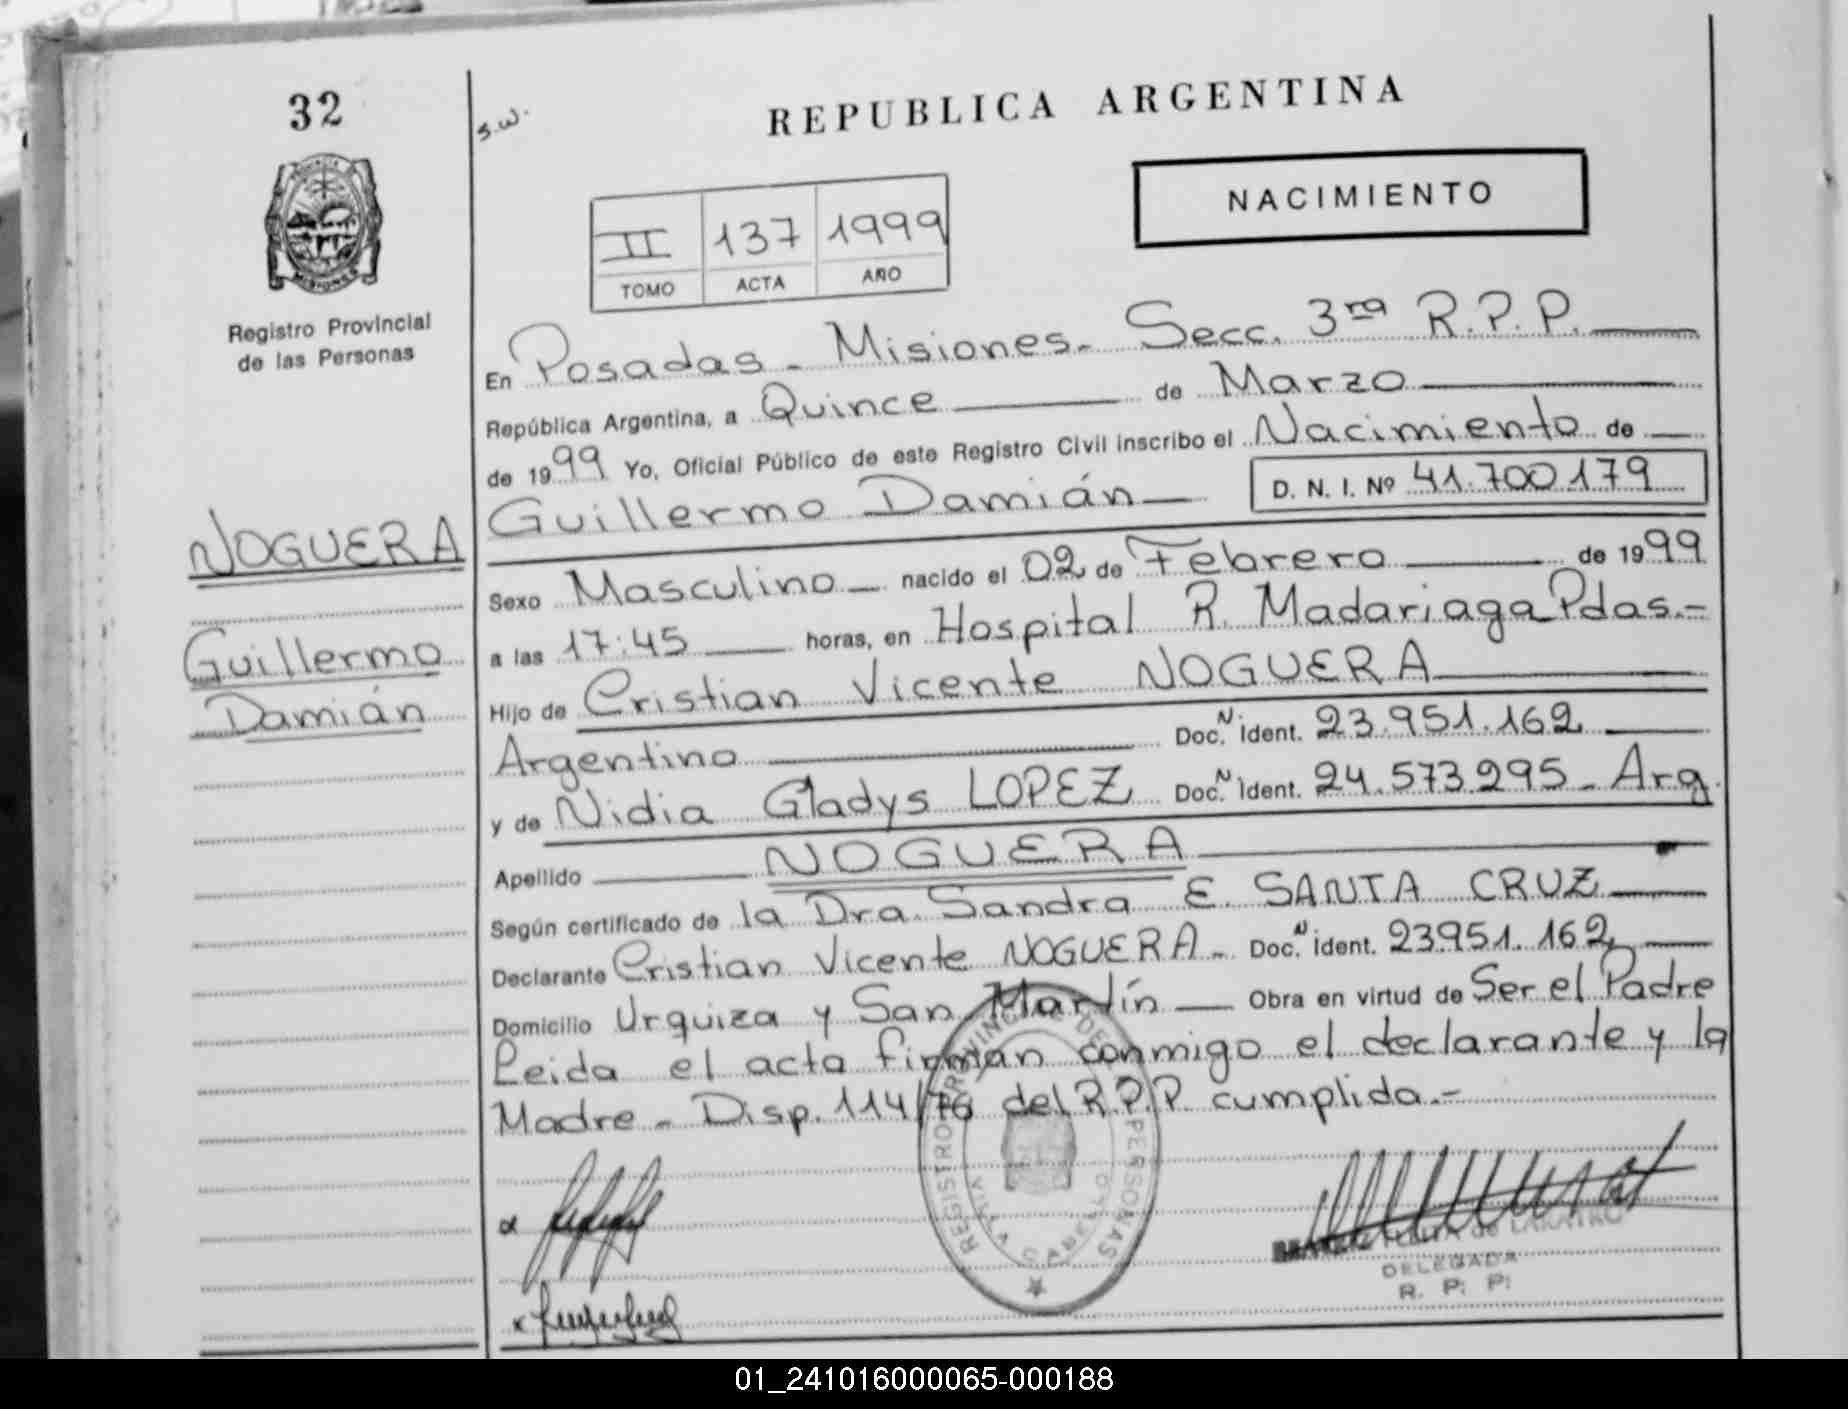 32
s.w.
REPUBLICA ARGENTINA
NACIMIENTO
II 137 1999
TOMO ACTA AÑO
Registro Provincial
de las Personas
En Posadas - Misiones - Secc. 3ra R.P.P.
República Argentina, a Quince de Marzo
de 1999 Yo, Oficial Público de este Registro Civil inscribo el Nacimiento de
Guillermo Damián D. N. I. Nº 41.700.179
NOGUERA
Guillermo
Damián
Sexo Masculino nacido el 02 de Febrero de 1999
a las 17:45 horas, en Hospital R. Madariaga Pdas.-
Hijo de Cristian Vicente NOGUERA
Argentino Doc. N ident. 23.951.162
y de Nidia Gladys LOPEZ Doc. N ident. 24.573.295 - Arg.
Apellido NOGUERA
Según certificado de la Dra. Sandra E. SANTA CRUZ
Declarante Cristian Vicente NOGUERA - Doc. N ident. 23.951.162
Domicilio Urquiza y San Martín Obra en virtud de Ser el Padre
Leida el acta firman conmigo el declarante y la
Madre - Disp. 114/76 del R.P.P. cumplida.-
REGISTRO PROVINCIAL DE LAS PERSONAS
VILLA CABELLO
DELEGADA
R. P. P.
01_241016000065-000188